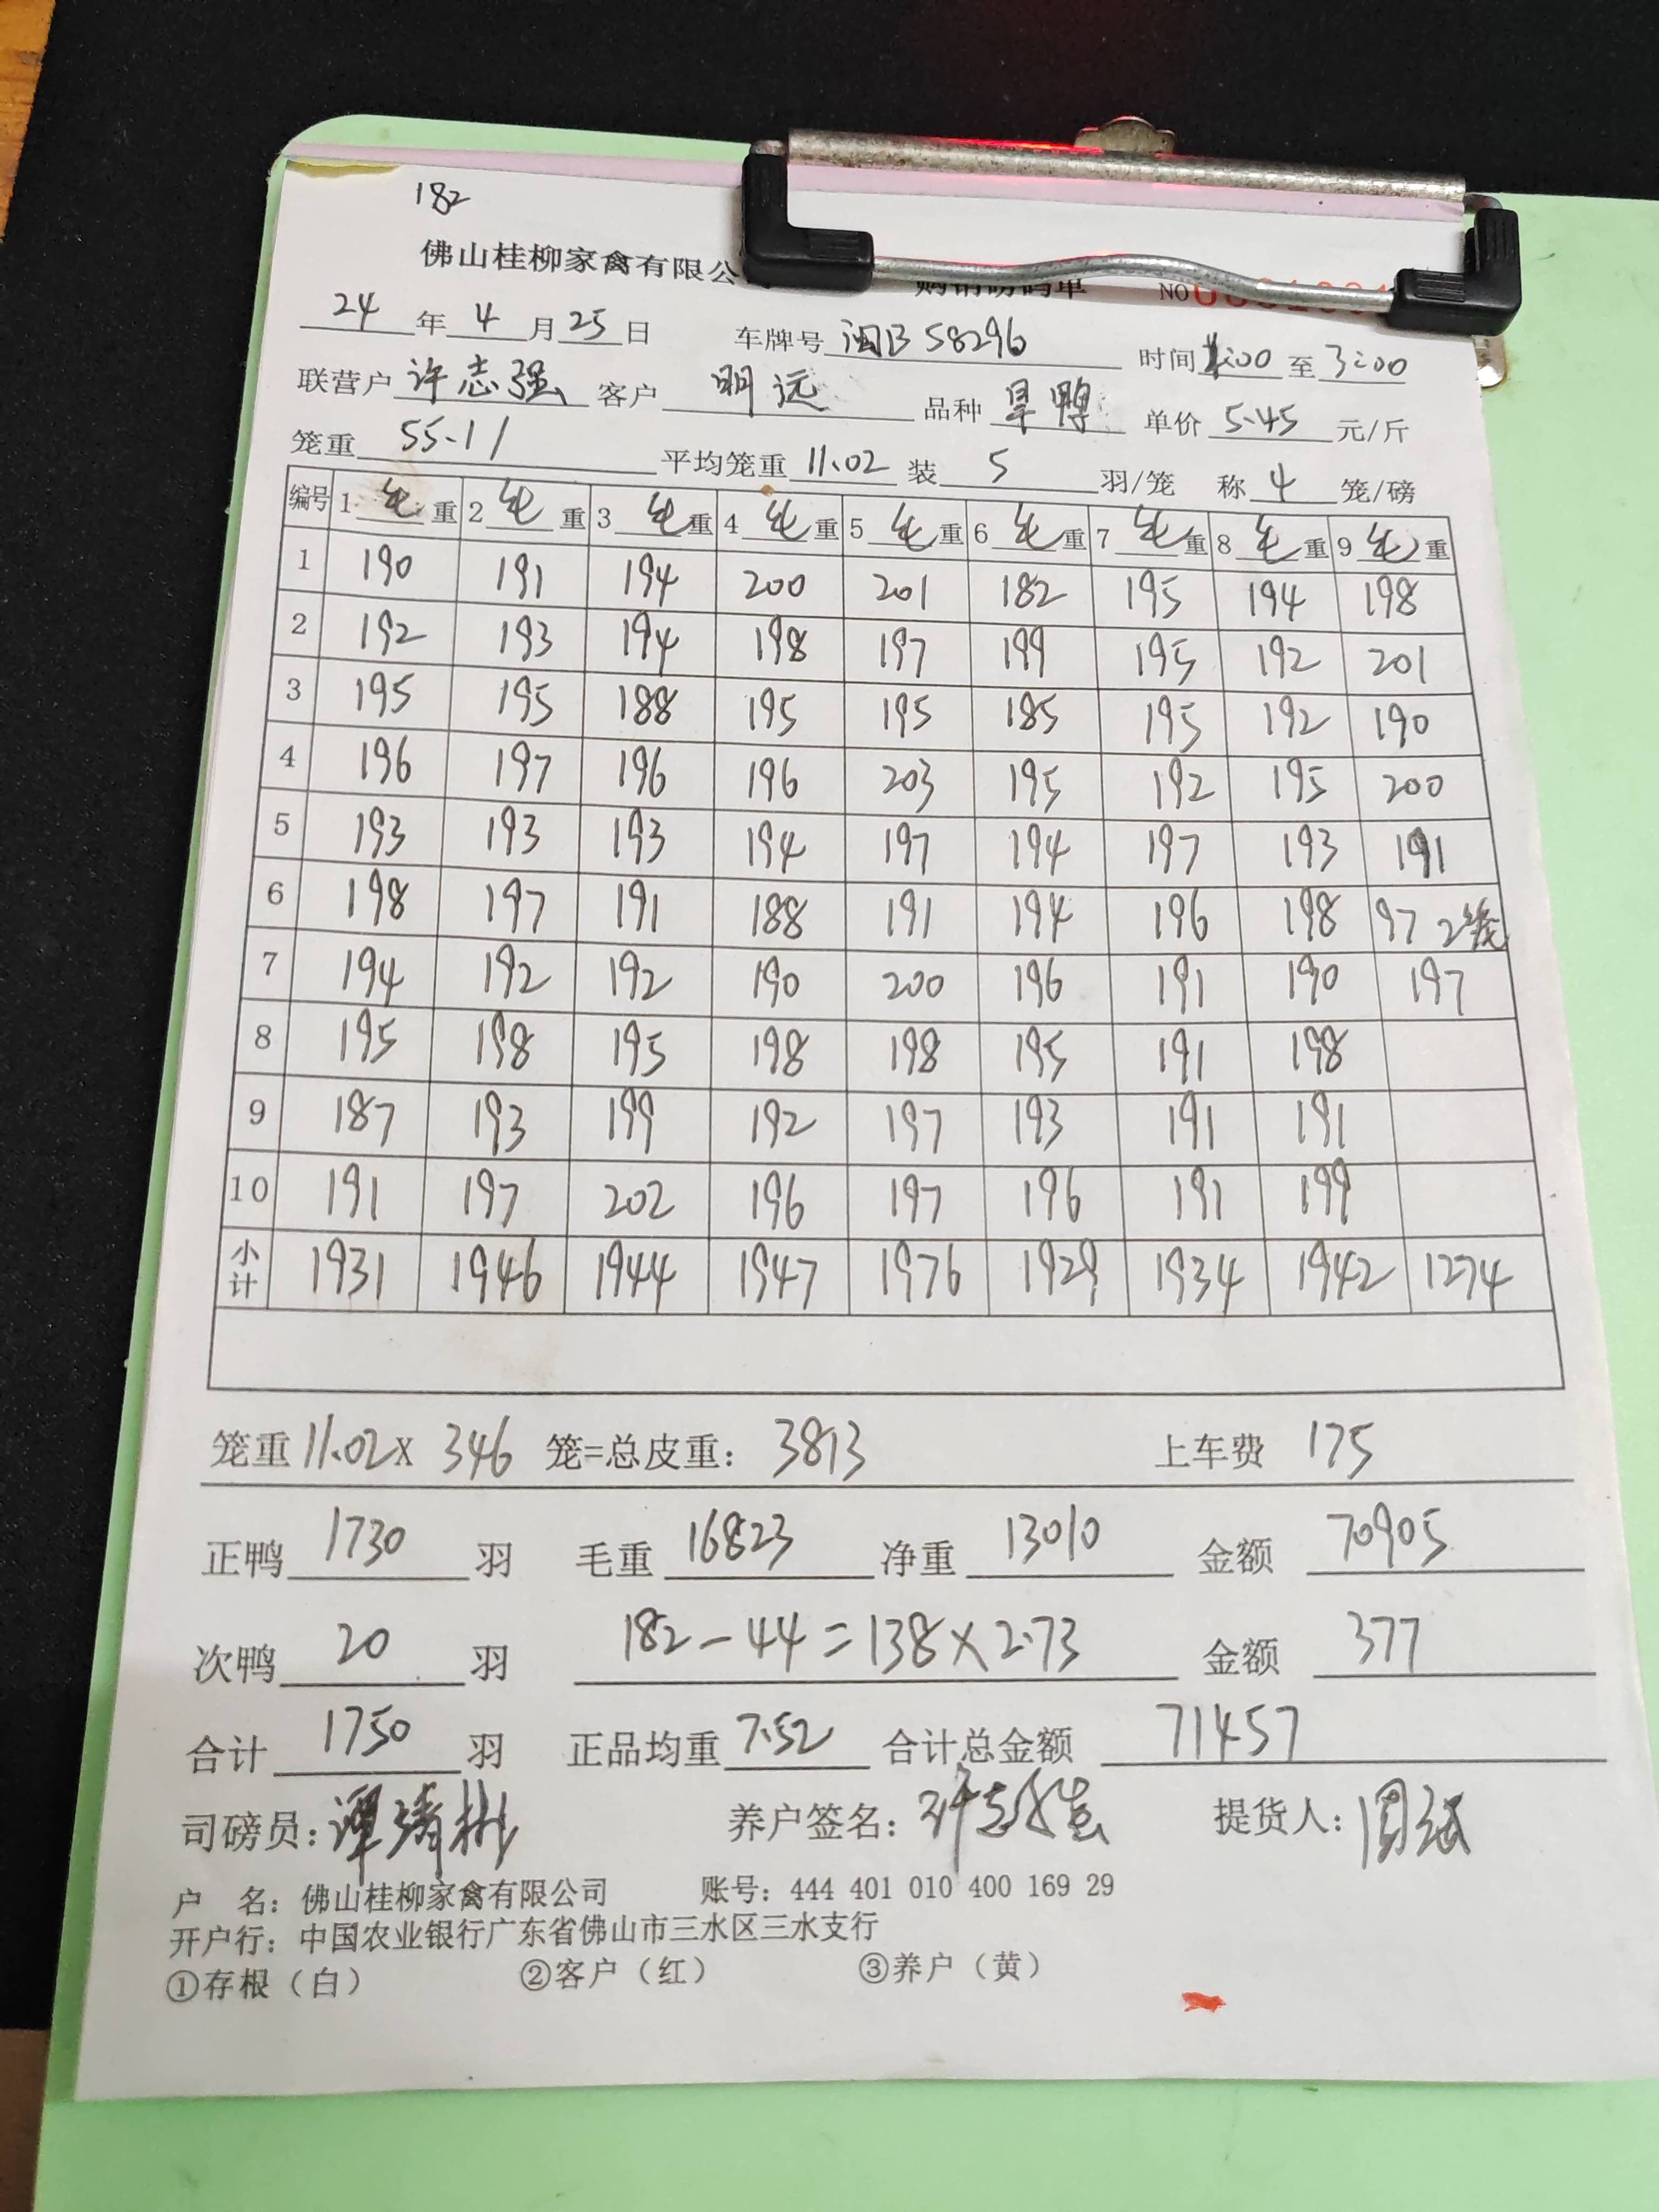 182
佛山桂柳家禽有限公 购销磅码单 NO
24 年 4 月 25 日 车牌号 闽B 58296 时间 1:00 至 3:00
联营户 许志强 客户 明远 品种 旱鸭 单价 5.45 元/斤
笼重 55.11 平均笼重 11.02 装 5 羽/笼 称 4 笼/磅
编号 1 毛 重 2 毛 重 3 毛 重 4 毛 重 5 毛 重 6 毛 重 7 毛 重 8 毛 重 9 毛 重
1 190 191 194 200 201 182 195 194 198
2 192 193 194 198 197 199 195 192 201
3 195 195 188 195 195 185 195 192 190
4 196 197 196 196 203 195 192 195 200
5 193 193 193 194 197 194 197 193 191
6 198 197 191 188 191 194 196 198 97 2笼
7 194 192 192 190 200 196 191 190 197
8 195 198 195 198 198 195 191 198
9 187 193 199 192 197 193 191 191
10 191 197 202 196 197 196 191 199
小计 1931 1946 1944 1947 1976 1929 1934 1942 1274
笼重 11.02 x 346 笼=总皮重： 3813 上车费 175
正鸭 1730 羽 毛重 16823 净重 13010 金额 70905
次鸭 20 羽 182-44=138×2.73 金额 377
合计 1750 羽 正品均重 7.52 合计总金额 71457
司磅员： 养户签名： 提货人：
户 名：佛山桂柳家禽有限公司 账号：444 401 010 400 169 29
开户行：中国农业银行广东省佛山市三水区三水支行
①存根（白） ②客户（红） ③养户（黄）